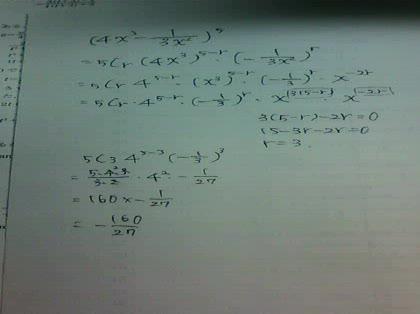 (4x³ - 1/3x²)⁵
= 5Cr (4x³)⁵⁻ʳ · (-1/3x²)ʳ
= 5Cr · 4⁵⁻ʳ · (x³)⁵⁻ʳ · (-1/3)ʳ · x⁻²ʳ
= 5Cr · 4⁵⁻ʳ · (-1/3)ʳ · x³⁽⁵⁻ʳ⁾ · x⁻²ʳ
3(5-r)-2r=0
15-3r-2r=0
r=3.
5C3 4⁵⁻³ (-1/3)³
= 5·4·3/3·2 · 4² · - 1/27
= 160 × - 1/27
= - 160/27